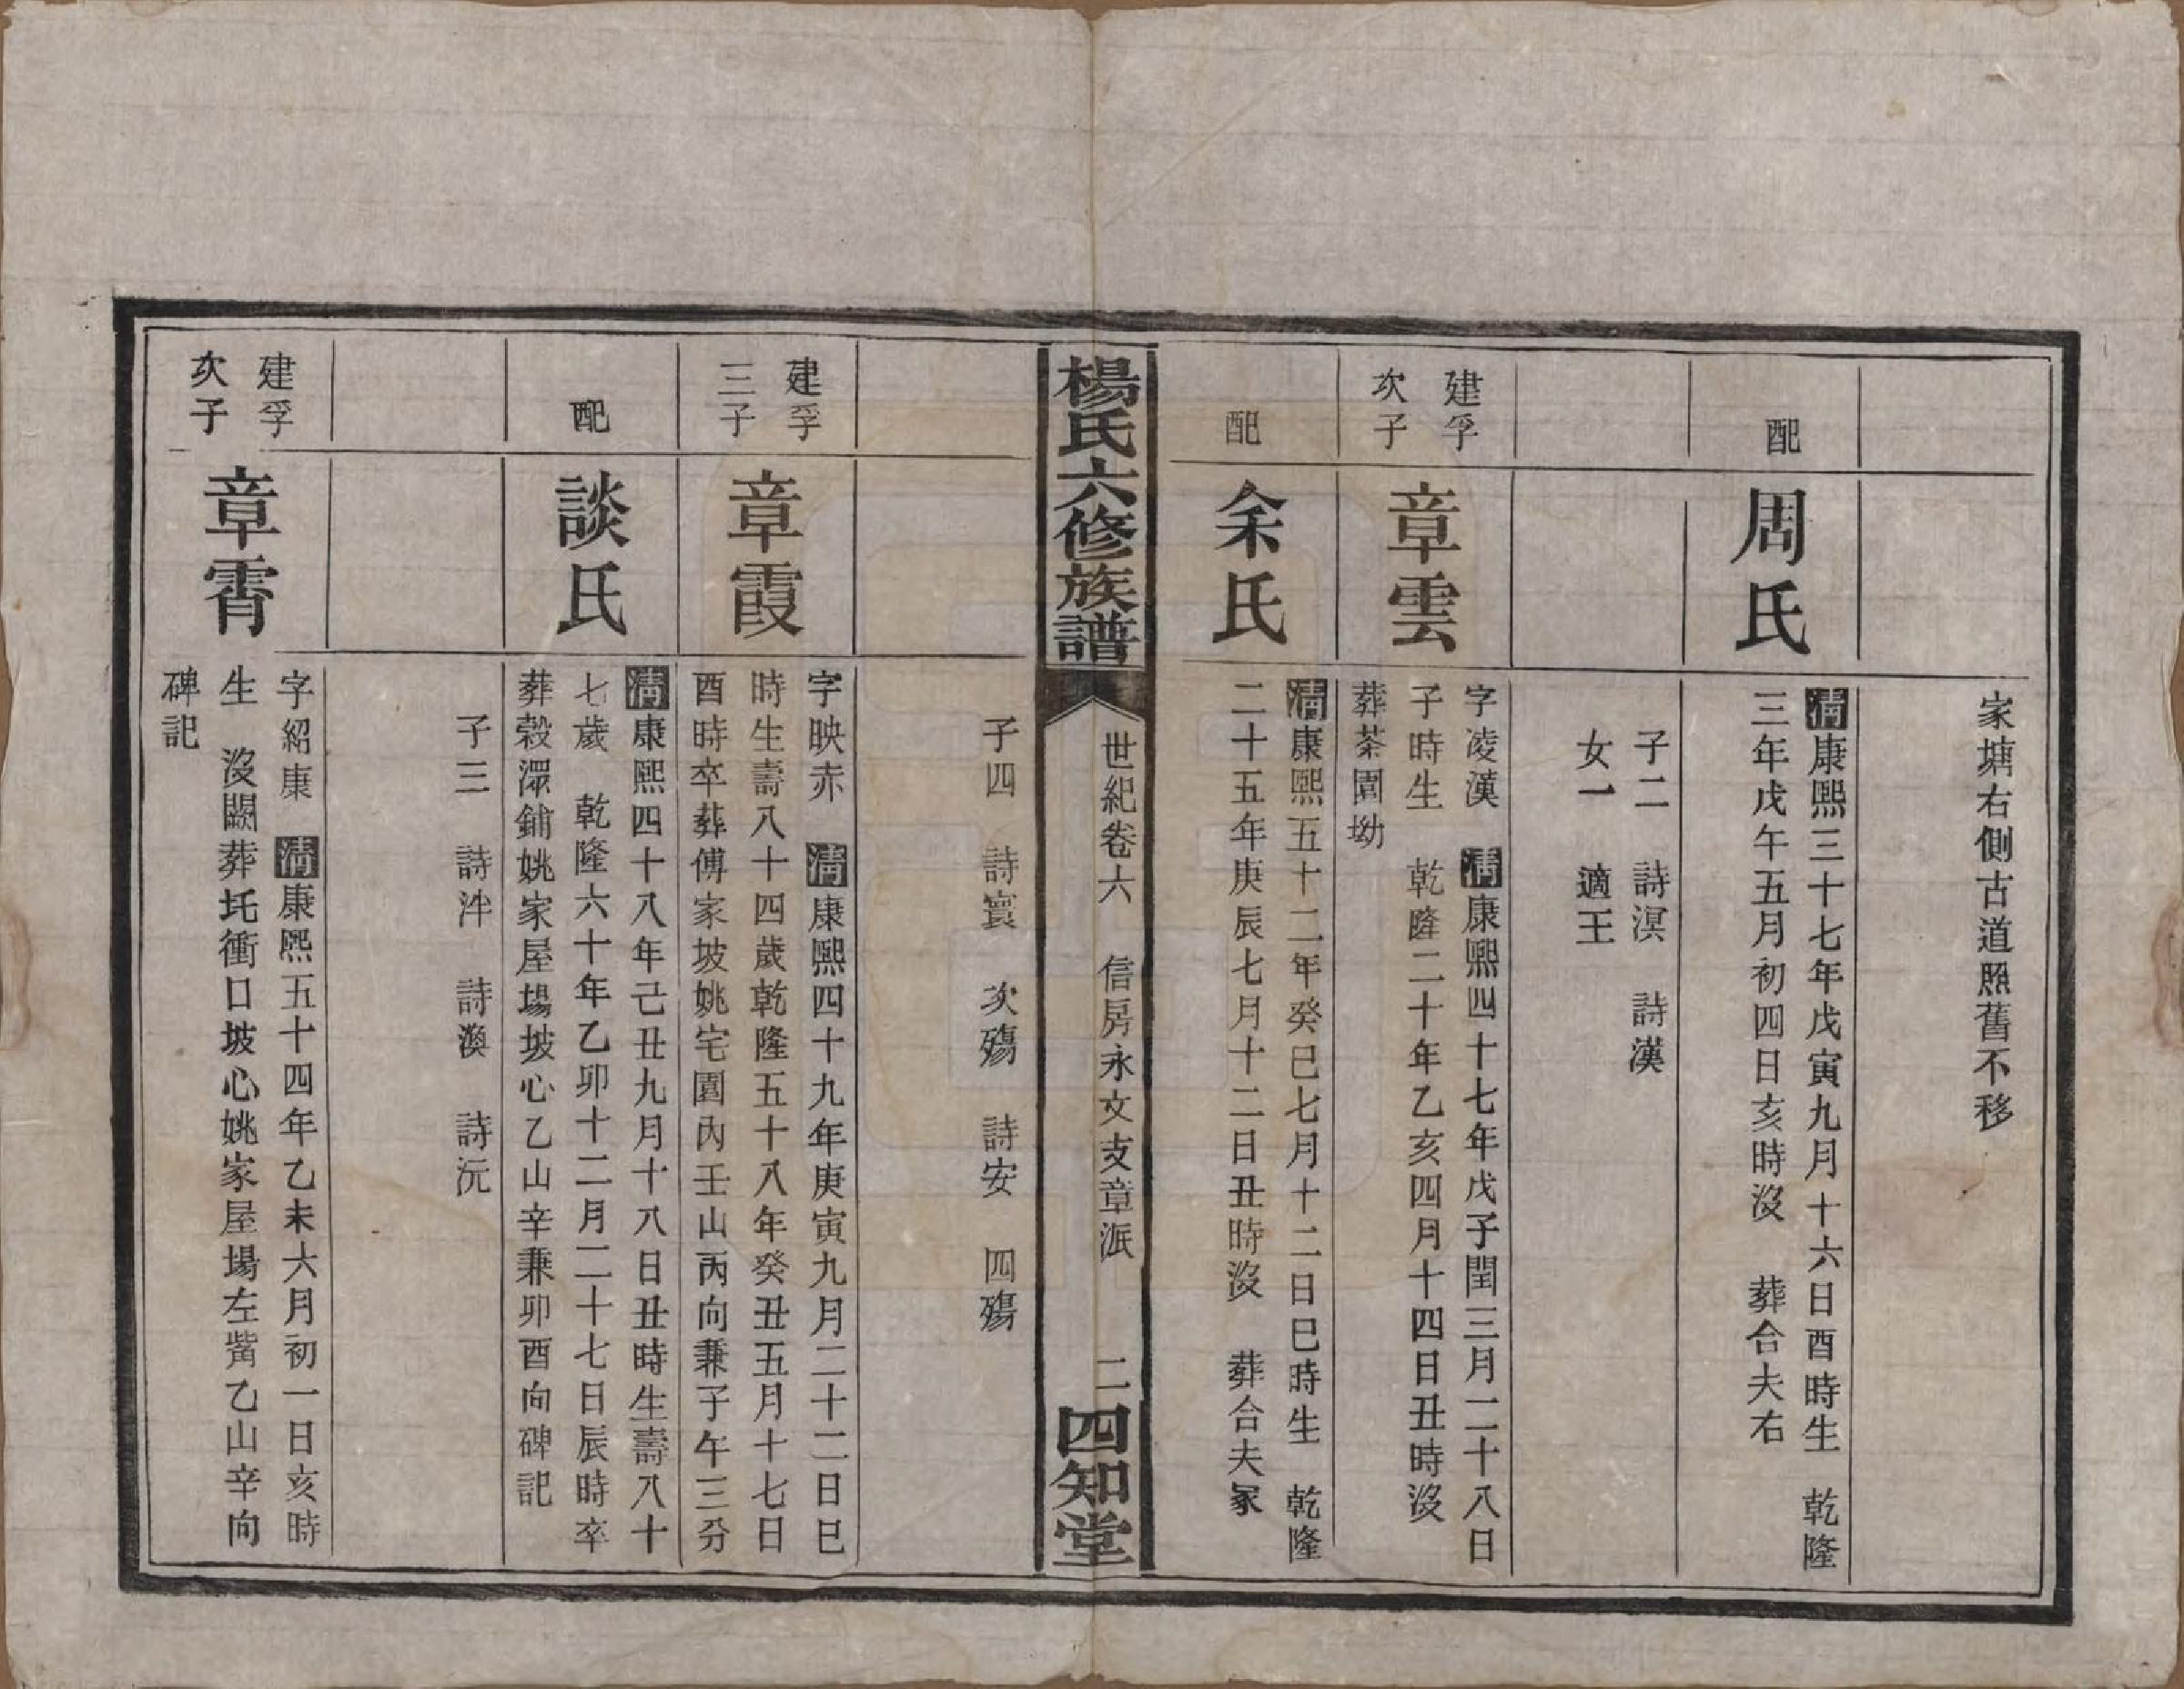 家塘右側古道照舊不移
配
周氏
清康熙三十七年戊寅九月十六日酉時生 乾隆
三年戊午五月初四日亥時沒 葬合夫右
子二 詩溟 詩漢
女一 適王
建孚
次子
章雲
字凌漢 清康熙四十七年戊子閏三月二十八日
子時生 乾隆二十年乙亥四月十四日丑時沒
葬茶園坳
配
余氏
清康熙五十二年癸巳七月十二日巳時生 乾隆
二十五年庚辰七月十二日丑時沒 葬合夫冢
楊氏六修族譜
世紀卷六 信房永文支章派 二
四知堂
子四 詩寰 次殤 詩安 四殤
建孚
三子
章霞
字映赤 清康熙四十九年庚寅九月二十二日巳
時生壽八十四歲乾隆五十八年癸丑五月十七日
酉時卒葬傅家坡姚宅園內壬山丙向兼子午三分
配
談氏
清康熙四十八年己丑九月十八日丑時生壽八十
七歲 乾隆六十年乙卯十二月二十七日辰時卒
葬穀澴鋪姚家屋場坡心乙山辛兼卯酉向碑記
子三 詩泮 詩渙 詩沅
建孚
次子
章霄
字紹康 清康熙五十四年乙未六月初一日亥時
生 沒闕葬圫衝口坡心姚家屋場左觜乙山辛向
碑記